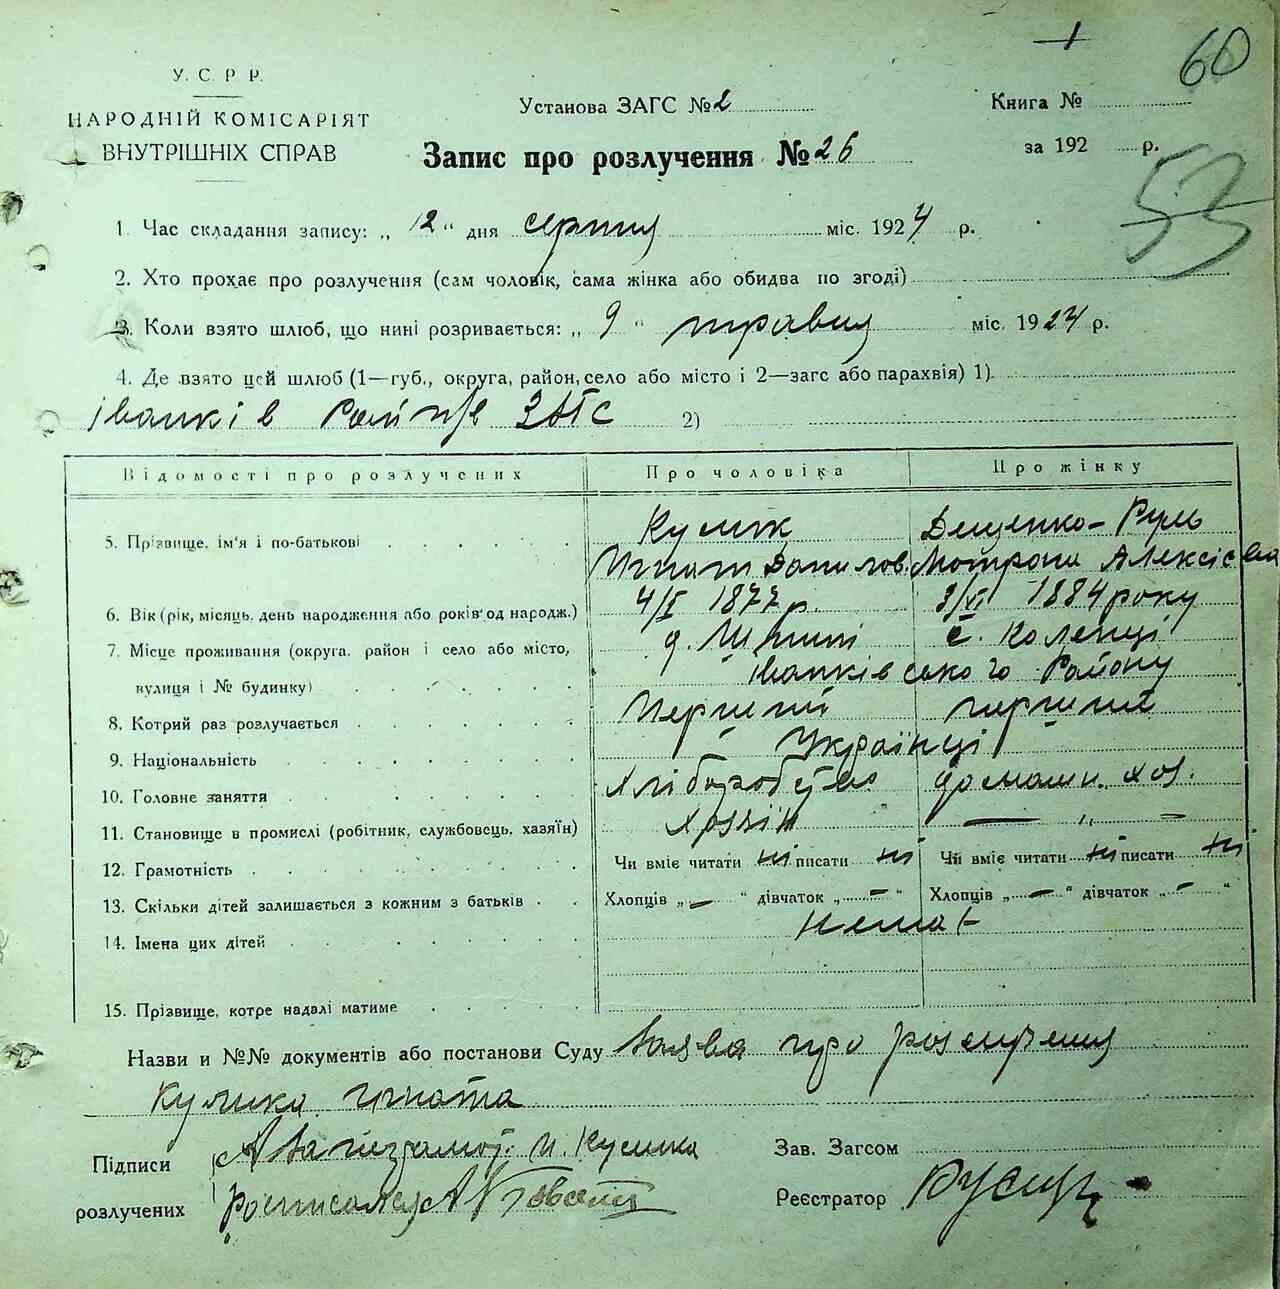 60
У. С. Р Р.
НАРОДНІЙ КОМІСАРІЯТ
ВНУТРІШНІХ СПРАВ
Установа ЗАГС № 2
Книга №
Запис про розлучення № 26
за 192 р.
53
1. Час складання запису: „ 12 “ дня серпня міс. 1924 р.
2. Хто прохає про розлучення (сам чоловік, сама жінка або обидва по згоді)
3. Коли взято шлюб, що нині розривається: „ 9 “ травня міс. 1924 р.
4. Де взято цей шлюб (1—губ., округа, район, село або місто і 2—загс або парахвія) 1)
Іванків ЗАГС 2)
Відомості про розлучених Про чоловіка Про жінку
5. Прізвище, ім'я і по-батькові Кулик Дещенко-Руль
Игнат Данилов. Мотрона Алексієвна
6. Вік (рік, місяць, день народження або років од народж.) 4/I 1877 р. 1884 року
7. Місце проживання (округа, район і село або місто, с. Коленці
вулиця і № будинку) Іванківського Району
8. Котрий раз розлучається Перший перший
9. Національність Українці
10. Головне заняття Хліборобство домашн. хоз.
11. Становище в промислі (робітник, службовець, хазяїн) Хозяїн — „ —
12. Грамотність Чи вміє читати ні писати ні Чи вміє читати ні писати ні
13. Скільки дітей залишається з кожним з батьків Хлопців „ — “ дівчаток „ — “ Хлопців „ — “ дівчаток „ — “
14. Імена цих дітей нема
15. Прізвище, котре надалі матиме
Назви и №№ документів або постанови Суду Заява про
Кулика Гната
Підписи И. Кулика Зав. Загсом
розлучених Росписался Реєстратор